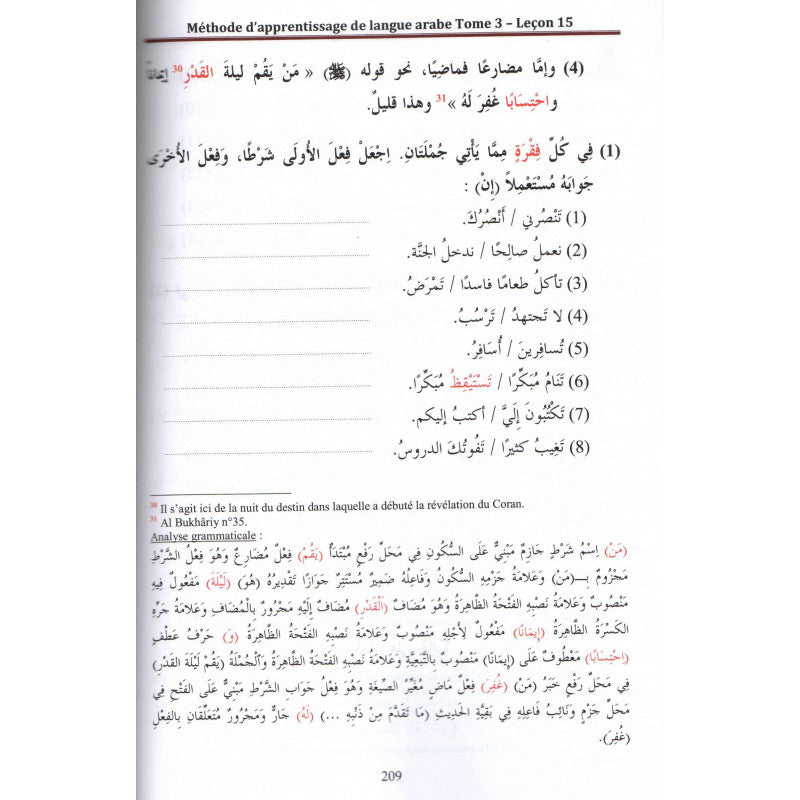 Méthode d'apprentissage de langue arabe Tome 3 – Leçon 15
(4) وإمَّا مضارعًا فماضيًا، نحو قوله (ﷺ) « مَنْ يَقُمْ ليلةَ القَدْرِ30 إيمانًا
واحْتِسَابًا غُفِرَ لَهُ »31 وهذا قليلٌ.
(1) فِي كُلِّ فِقْرَةٍ مِمَّا يَأْتِي جُمْلَتَانِ. اِجْعَلْ فِعْلَ الأُولَى شَرْطًا، وَفِعْلَ الأُخْرَى
جَوَابَهُ مُسْتَعْمِلاً (إِنْ) :
(1) تَنْصُرني / أَنْصُرُكَ. ........................
(2) نعملُ صالِحًا / ندخلُ الجنَّة. ........................
(3) تأكلُ طعامًا فاسدًا / تَمْرَضُ. ........................
(4) لا تَجتهدُ / تَرْسُبُ. ........................
(5) تُسافِرينَ / أُسَافِرُ. ........................
(6) تَنَامُ مُبَكِّرًا / تَسْتَيْقِظُ مُبَكِّرًا. ........................
(7) تَكْتُبُونَ إِلَيَّ / أكتبُ إليكم. ........................
(8) تَغِيبُ كثيرًا / تَفُوتُكَ الدروسُ. ........................
30 Il s'agit ici de la nuit du destin dans laquelle a débuté la révélation du Coran.
31 Al Bukhâriy n°35.
Analyse grammaticale :
(مَنْ) اِسْمُ شَرْطٍ جَازِمٌ مَبْنِيٌّ عَلَى السُّكُونِ فِي مَحَلِّ رَفْعٍ مُبْتَدَأٌ (يَقُمْ) فِعْلٌ مُضَارِعٌ وَهُوَ فِعْلُ الشَّرْطِ
مَجْزُومٌ بِـــ(مَنْ) وَعَلاَمَةُ جَزْمِهِ السُّكُونُ وَفَاعِلُهُ ضَمِيرٌ مُسْتَتِرٌ جَوَازًا تَقْدِيرُهُ (هُوَ) (لَيْلَةَ) مَفْعُولٌ فِيهِ
مَنْصُوبٌ وَعَلاَمَةُ نَصْبِهِ الفَتْحَةُ الظَّاهِرَةُ وَهُوَ مُضَافٌ (اَلْقَدْرِ) مُضَافٌ إِلَيْهِ مَجْرُورٌ بِالْمُضَافِ وَعَلاَمَةُ جَرِّهِ
الكَسْرَةُ الظَّاهِرَةُ (إِيمَانًا) مَفْعُولٌ لِأَجْلِهِ مَنْصُوبٌ وَعَلاَمَةُ نَصْبِهِ الفَتْحَةُ الظَّاهِرَةُ (وَ) حَرْفُ عَطْفٍ
(احْتِسَابًا) مَعْطُوفٌ عَلَى (إِيمَانًا) مَنْصُوبٌ بِالتَّبَعِيَّةِ وَعَلاَمَةُ نَصْبِهِ الفَتْحَةُ الظَّاهِرَةُ وَاَلْجُمْلَةُ (يَقُمْ لَيْلَةَ القَدْرِ)
فِي مَحَلِّ رَفْعِ خَبَرُ (مَنْ) (غُفِرَ) فِعْلٌ مَاضٍ مُغَيَّرُ الصِّيغَةِ وَهُوَ فِعْلُ جَوَابِ الشَّرْطِ مَبْنِيٌّ عَلَى الفَتْحِ فِي
مَحَلِّ جَزْمٍ وَنَائِبُ فَاعِلِهِ فِي بَقِيَّةِ الْحَدِيثِ (مَا تَقَدَّمَ مِنْ ذَنْبِهِ ...) (لَهُ) جَارٌّ وَمَجْرُورٌ مُتَعَلِّقَانِ بِالفِعْلِ
(غُفِرَ).
209